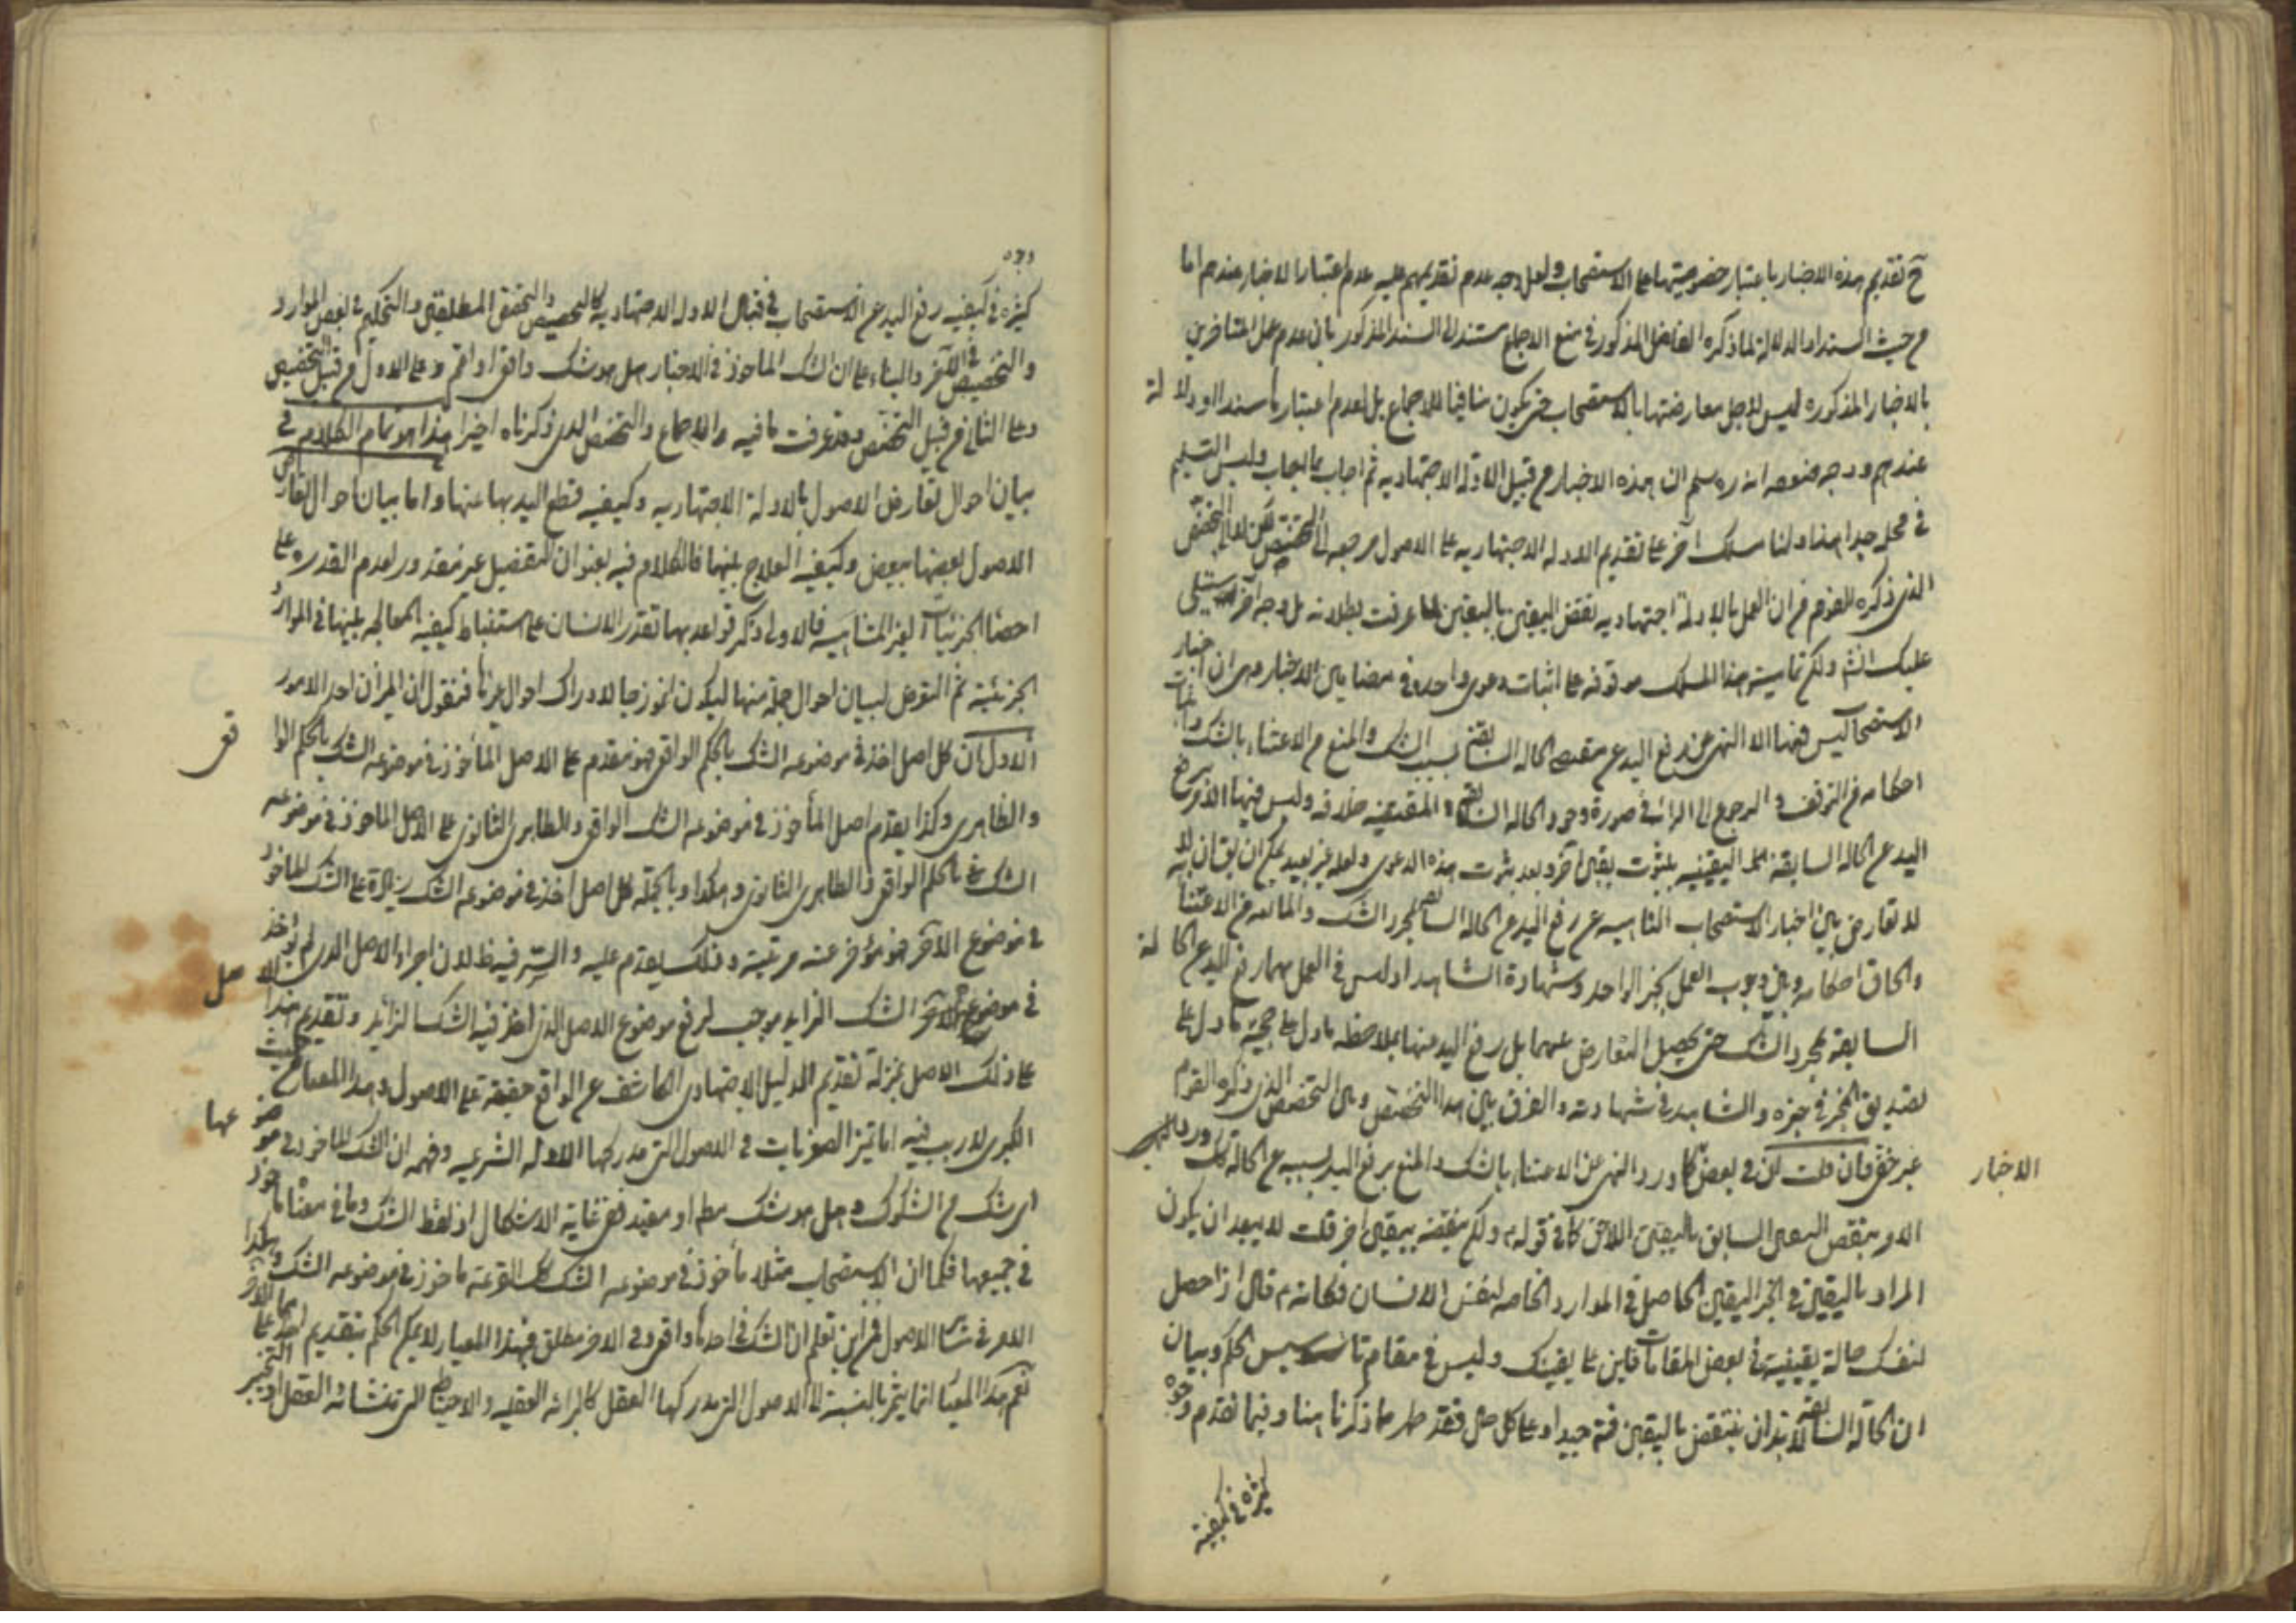 ح تقديم هذه الاخبار باعتبار خصوصيتها على الاستصحاب ولعل وجه عدم تقديمهم عليه عدم اعتبار الاخبار عندهم اما
من حيث السند او الدلالة لما ذكره الفاضل المذكور في منع الاجماع مستندا الى السند المذكور بان عدم عمل المتأخرين
بالاخبار المذكوره ليس لاجل معارضتها بالاستصحاب حتى يكون منافيا للاجماع بل لعدم اعتبارها سندا او دلالة
عندهم ووجه ضعفه انه ره سلم ان هذه الاخبار من قبيل الادلة الاجتهاديه ثم اجاب بما اجاب وليس التسليم
في محله جدا هذا ولنا مسلك آخر على تقديم الادله الاجتهاديه على الاصول مرجعه الى التخصص لكن لا التخصص
الذي ذكره القوم من ان العمل بالادلة اجتهاديه نقض اليقين باليقين لما عرفت بطلانه بل وجه آخر سيتلى
عليك انشم ولكن تماميته هذا المسلك موقوفه على اثبات دعوى واحدة في مضامين الاخبار وهي ان اخبار
الاستصحاب ليس فيها الا النهي عن رفع اليد عن مقتضى الحاله السابقة بسبب الشك والمنع من الاعتناء بالشك واثبات
احكامه من التوقف و الرجوع الى البرائة في صورة وجود الحاله السابقة المقتضيه خلافه وليس فيها الامر برفع
اليد عن الحاله السابقه اليقينيه بثبوت يقين آخر وبعد ثبوت هذه الدعوى ولعله غير بعيد يمكن ان يقال انه
لا تعارض بين اخبار الاستصحاب الناهيه عن رفع اليد عن الحاله السابقة بمجرد الشك والمانعه من الاعتناء
والحاق احكامه وبين وجوب العمل بخبر الواحد وشهادة الشاهد اذ ليس في العمل بهما رفع اليد عن الحالة
السابقه بمجرد الشك حتى يحصل التعارض عنهما بل رفع اليد عنها بملاحظه ما دل على حجية ما دل على
تصديق المخبر في خبره والشاهد في شهادته والفرق بين هذا التخصص وبين التخصص الذي ذكره القوم
غير خفي فان قلت لكن في بعض الاخبار كما ورد النهي عن الاعتناء بالشك والمنع برفع اليد بسببه عن الحاله كك ورد
الامر بنقض اليقين السابق باليقين اللاحق كما في قوله ع ولكن ينقضه بيقين آخر قلت لا يبعد ان يكون
المراد باليقين في الخبر اليقين الحاصل في الموارد الخاصه لنفس الانسان فكانه ع قال اذا حصل
لنفسك حالة يقينية في بعض المقامات فابن على يقينك وليس في مقام تاسيس الحكم وبيان
ان الحالة السابقة لا بد ان ينتقض باليقين فتم جيدا وعلى كل حال فقد ظهر مما ذكرنا هنا وفيما تقدم وجوه
كثيره في كيفية
وجوه
كثيره في كيفيه رفع اليد عن الاستصحاب في قبال الادله الاجتهاديه كالتخصيص والتخصص المطلقين والتحكيم في بعض الموارد
والتخصيص في الآخر والبناء على ان الشك الماخوذ في الاخبار هل هو شك واقعي او اعم وعلى الاول من قبيل التخصيص
وعلى الثاني من قبيل التخصص وقد عرفت ما فيه والاجماع والتخصص الذي ذكرناه اخيرا هذا هو تمام الكلام في
بيان احوال تعارض الاصول بالادلة الاجتهاديه وكيفيه قطع اليد بها عنها واما بيان احوال تعارض
الاصول بعضها ببعض وكيفيه العلاج بينها فالكلام فيه بعنوان التفصيل غير مقدور لعدم القدره على
احصاء الجزئيات الغير المتناهيه فالاولى ذكر قواعد بها تقدر الانسان على استنباط كيفيه المعالجه بينها في الموارد
الجزئية ثم التعرض لبيان احوال جملة منها ليكون انموزجا لادراك احوال غيرها فنقول ان الميزان احد الامور
الاول ان كل اصل اخذ في موضوعه الشك بالحكم الواقعي فهو مقدم على الاصل المأخوذ في موضوعه الشك بالحكم الواقعي
والظاهري وكذا يقدم اصل المأخوذ في موضوعه الشك الواقعي والظاهري الثانوي على الاصل الماخوذ في موضوعه
الشك بالحكم الواقعي والظاهري الثانوي وهكذا وبالجملة كل اصل اخذ في موضوعه الشك زيادة على الشك الماخوذ
في موضوع الآخر فهو مؤخر عنه مرتبته وذلك يقدم عليه والسر فيه ظ لان اجراء الاصل الذي لم يؤخذ
في موضوع الآخر الشك الزايد موجب لرفع موضوع الاصل الذي اخذ فيه الشك الزائد وتقديم هذا الاصل
على ذلك الاصل بمنزلة تقديم الدليل الاجتهادي الكاشف عن الواقع حقيقة على الاصول وهذا المعيار من حيث
الكبرى لا ريب فيه اما تميز الصغريات في الاصول التي مدركها الادله الشرعيه وفهم ان الشك الماخوذ في موضوعها
اي شك من الشكوك وهل هو شك مطلق او مقيد ففي غاية الاشكال اذ لفظ الشك وما في معناه ماخوذ
في جميعها فكما ان الاستصحاب مثلا ماخوذ في موضوعه الشك كك القرعة ماخوذ في موضوعه الشك وهكذا
الامر في سائر الاصول فمن اين تعلم ان الشك في احدها واقعي وفي الآخر مطلق فبهذا المعيار لا يمكن الحكم بتقديم احدهما على الآخر
نعم هذا المعيار انما يثمر بالنسبة الى الاصول التي مدركها العقل كالبرائه العقليه والاحتياط التي منشائه العقل والتخيير